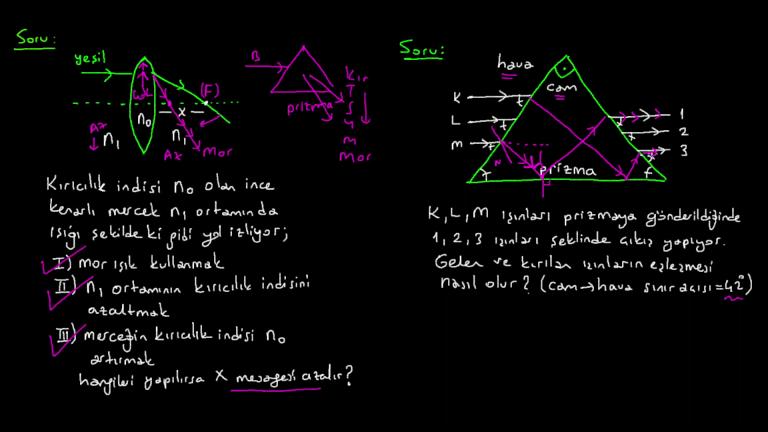 Soru:
yeşil
(F)
n₀
x
Az
n₁
n₁
Az
mor
B
prizma
mor
Kırıcılık indisi n₀ olan ince
kenarlı mercek n₁ ortamında
ışığı şekildeki gibi yol izliyor;
I) mor ışık kullanmak
II) n₁ ortamının kırıcılık indisini
azaltmak
III) merceğin kırıcılık indisi n₀
artırmak
hangileri yapılırsa x mesafesi azalır?
Soru:
hava
cam
K
L
M
1
2
3
prizma
K, L, M ışınları prizmaya gönderildiğinde
1, 2, 3 ışınları şeklinde çıkış yapıyor.
Gelen ve kırılan ışınların eşleşmesi
nasıl olur? (cam→hava sınır açısı=42°)